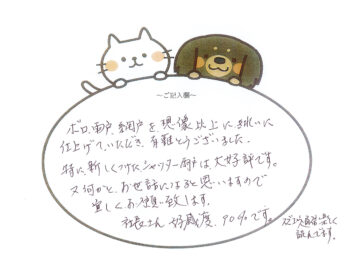 ～ご記入欄～
ボロ雨戸、網戸を想像以上にきれいに
仕上げていただき、有難とうございました。
特に新しくつけたシャッター雨戸は大好評です。
又何かと、お世話になると思いますので
宜しくお願い致します。
社長さん 好感度、90%です。
楽しく
読んでます。